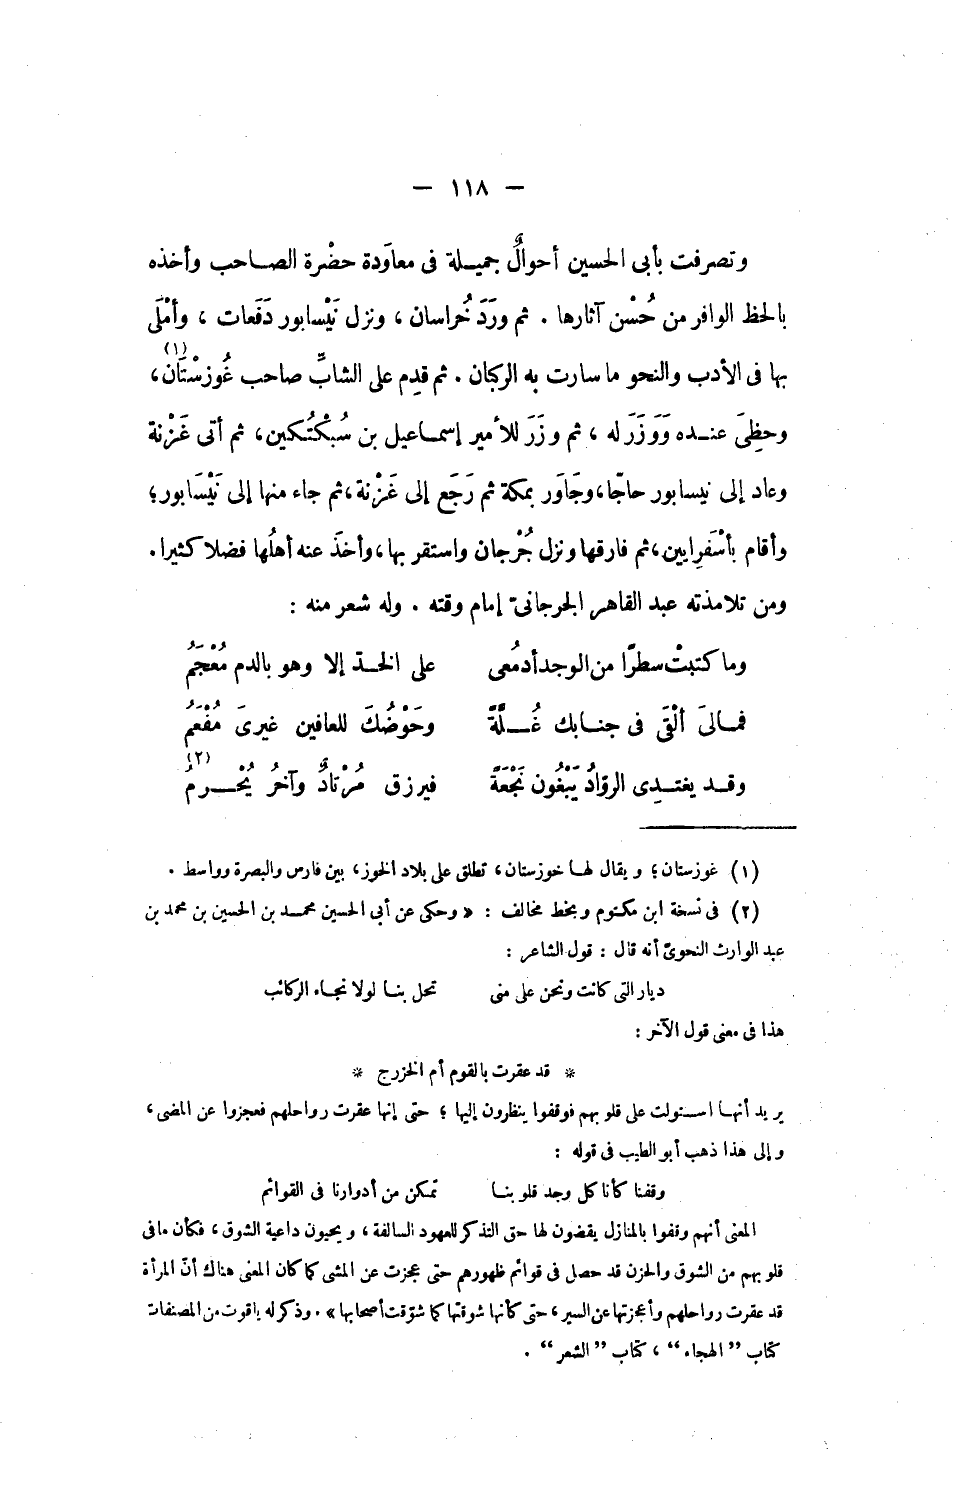 — ١١٨ —
وتصرفت بأبى الحسين أحوالٌ جميلة فى معاوَدة حضْرة الصاحب وأخذه
بالحظ الوافر من حُسْن آثارها . ثم ورَدَ خُراسان ، ونزل نَيْسابور دَفَعات ، وأمْلَى
بها فى الأدب والنحو ما سارت به الركبان . ثم قدِم على الشابِّ صاحب غُوزسْتَان(١)،
وحظِىَ عنده وَوَزَرَ له ، ثم وزَرَ للأمير إسماعيل بن سُبُكْتُكين، ثم أتى غَزْنة
وعاد إلى نيسابور حاجّا، وجَاوَر بمكة ثم رَجَع إلى غَزْنة، ثم جاء منها إلى نَيْسَابور؛
وأقام بأسْفَرايين، ثم فارقها ونزل جُرْجان واستقر بها، وأخذَ عنه أهلُها فضلا كثيرا.
ومن تلامذته عبد القاهر الجرجانىّ إمام وقته . وله شعر منه :
وما كتبتْ سطرًا من الوجد أدمُعى على الخدّ إلا وهو بالدم مُعْجَمُ
فمالىَ ألْقَى فى جنابك غُلَّةً وحَوْضُكَ للعافين غيرىَ مُفْعَمُ
وقد يغتدِى الروّادُ يَبْغُون نَجْعَةً فيرزق مُرْتادٌ وآخرُ يُحْرَمُ(٢)
(١) غوزستان؛ ويقال لها خوزستان، تطلق على بلاد الخوز، بين فارس والبصرة وواسط .
(٢) فى نسخة ابن مكتوم وبخط مخالف : « وحكى عن أبى الحسين محمد بن الحسين بن محمد بن
عبد الوارث النحوىّ أنه قال : قول الشاعر :
ديار التى كانت ونحن على منى تحل بنا لولا نجاء الركائب
هذا فى معنى قول الآخر :
* قد عقرت بالقوم أم الخزرج *
يريد أنها استولت على قلوبهم فوقفوا ينظرون إليها ؛ حتى إنها عقرت رواحلهم فعجزوا عن المضى ،
وإلى هذا ذهب أبو الطيب فى قوله :
وقفنا كأنا كل وجد قلوبنا تمكن من أدوارنا فى القوائم
المعنى أنهم وقفوا بالمنازل يقضون لها حق التذكر للعهود السالفة ، ويحيون داعية الشوق ، فكأن مافى
قلوبهم من الشوق والحزن قد حصل فى قوائم ظهورهم حتى عجزت عن المشى كما كان المعنى هناك أنّ المرأة
قد عقرت رواحلهم وأعجزتها عن السير ، حتى كأنها شوقتها كما شوّقت أصحابها » . وذكر له ياقوت من المصنفات
كتاب ”الهجاء“ ، كتاب ”الشعر“ .